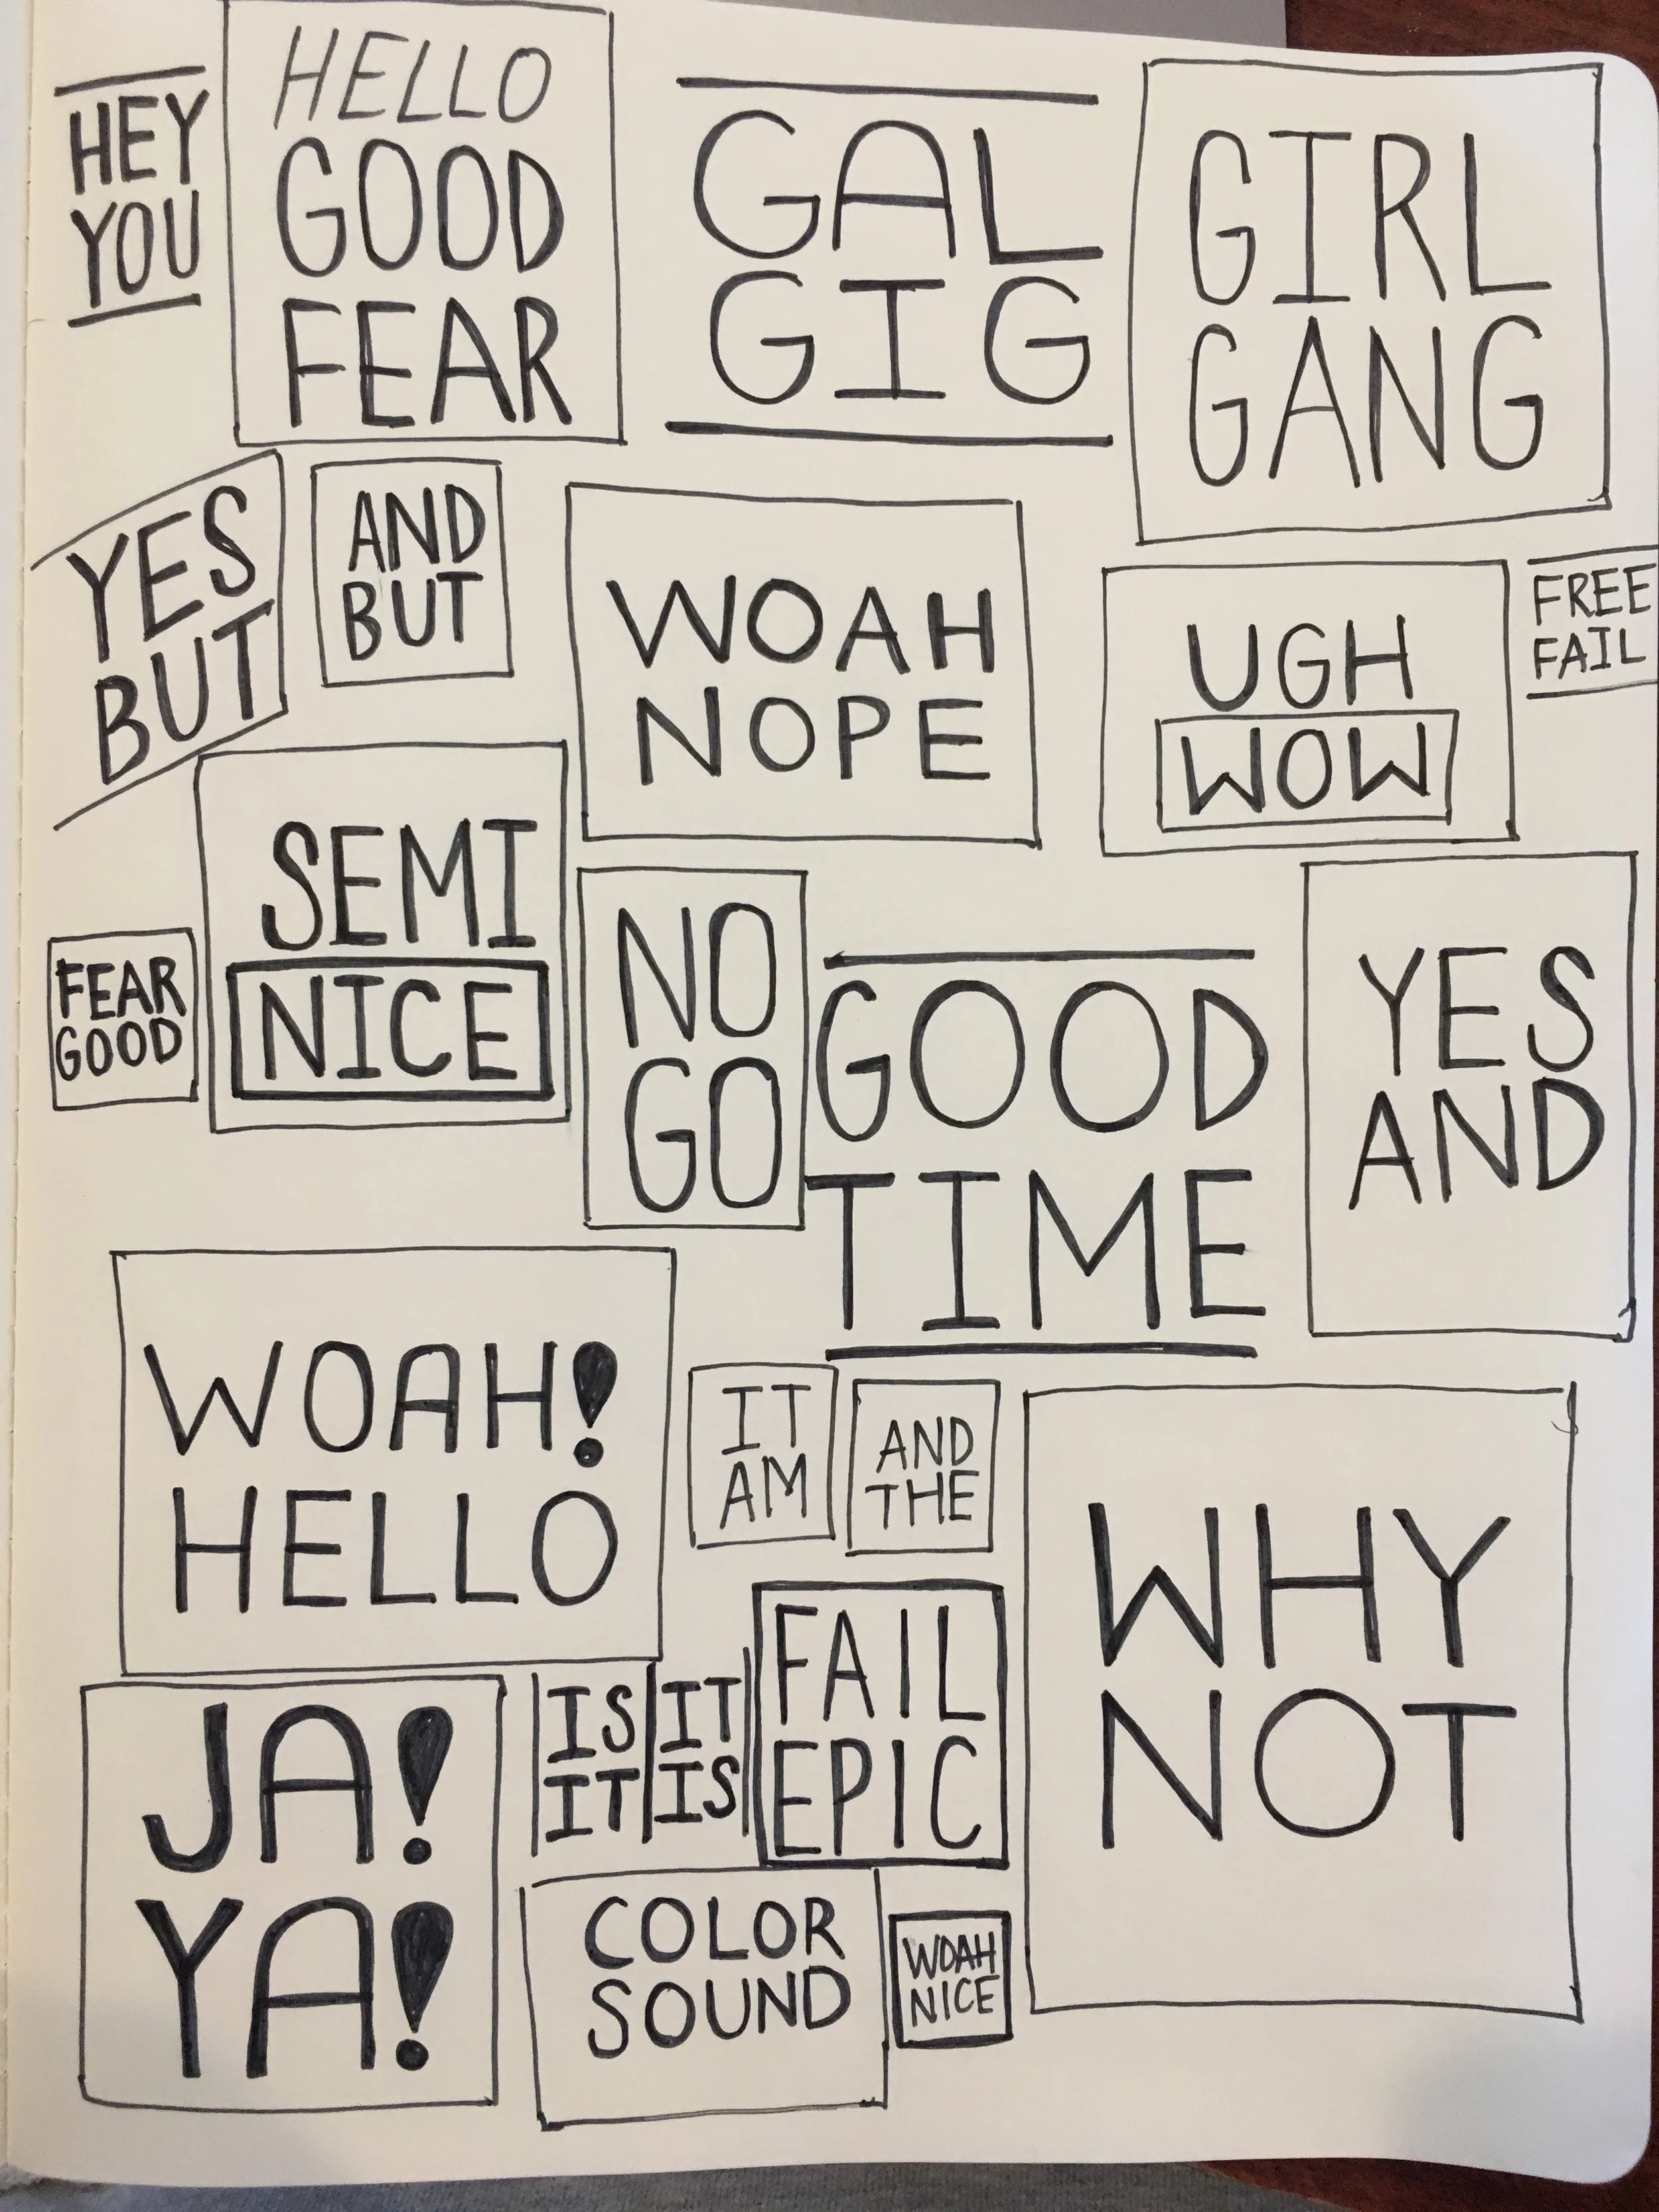 HEY
YOU
HELLO
GOOD
FEAR
GAL
GIG
GIRL
GANG
YES
BUT
AND
BUT
WOAH
NOPE
UGH
WOW
FREE
FAIL
FEAR
GOOD
SEMI
NICE
NO
GO
GOOD
TIME
YES
AND
WOAH!
HELLO
IT
AM
AND
THE
WHY
NOT
JA!
YA!
IS
IT
IT
IS
FAIL
EPIC
COLOR
SOUND
WOAH
NICE